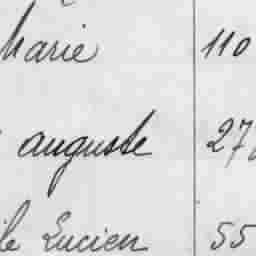 Marie 110
auguste 27
Lucien 55